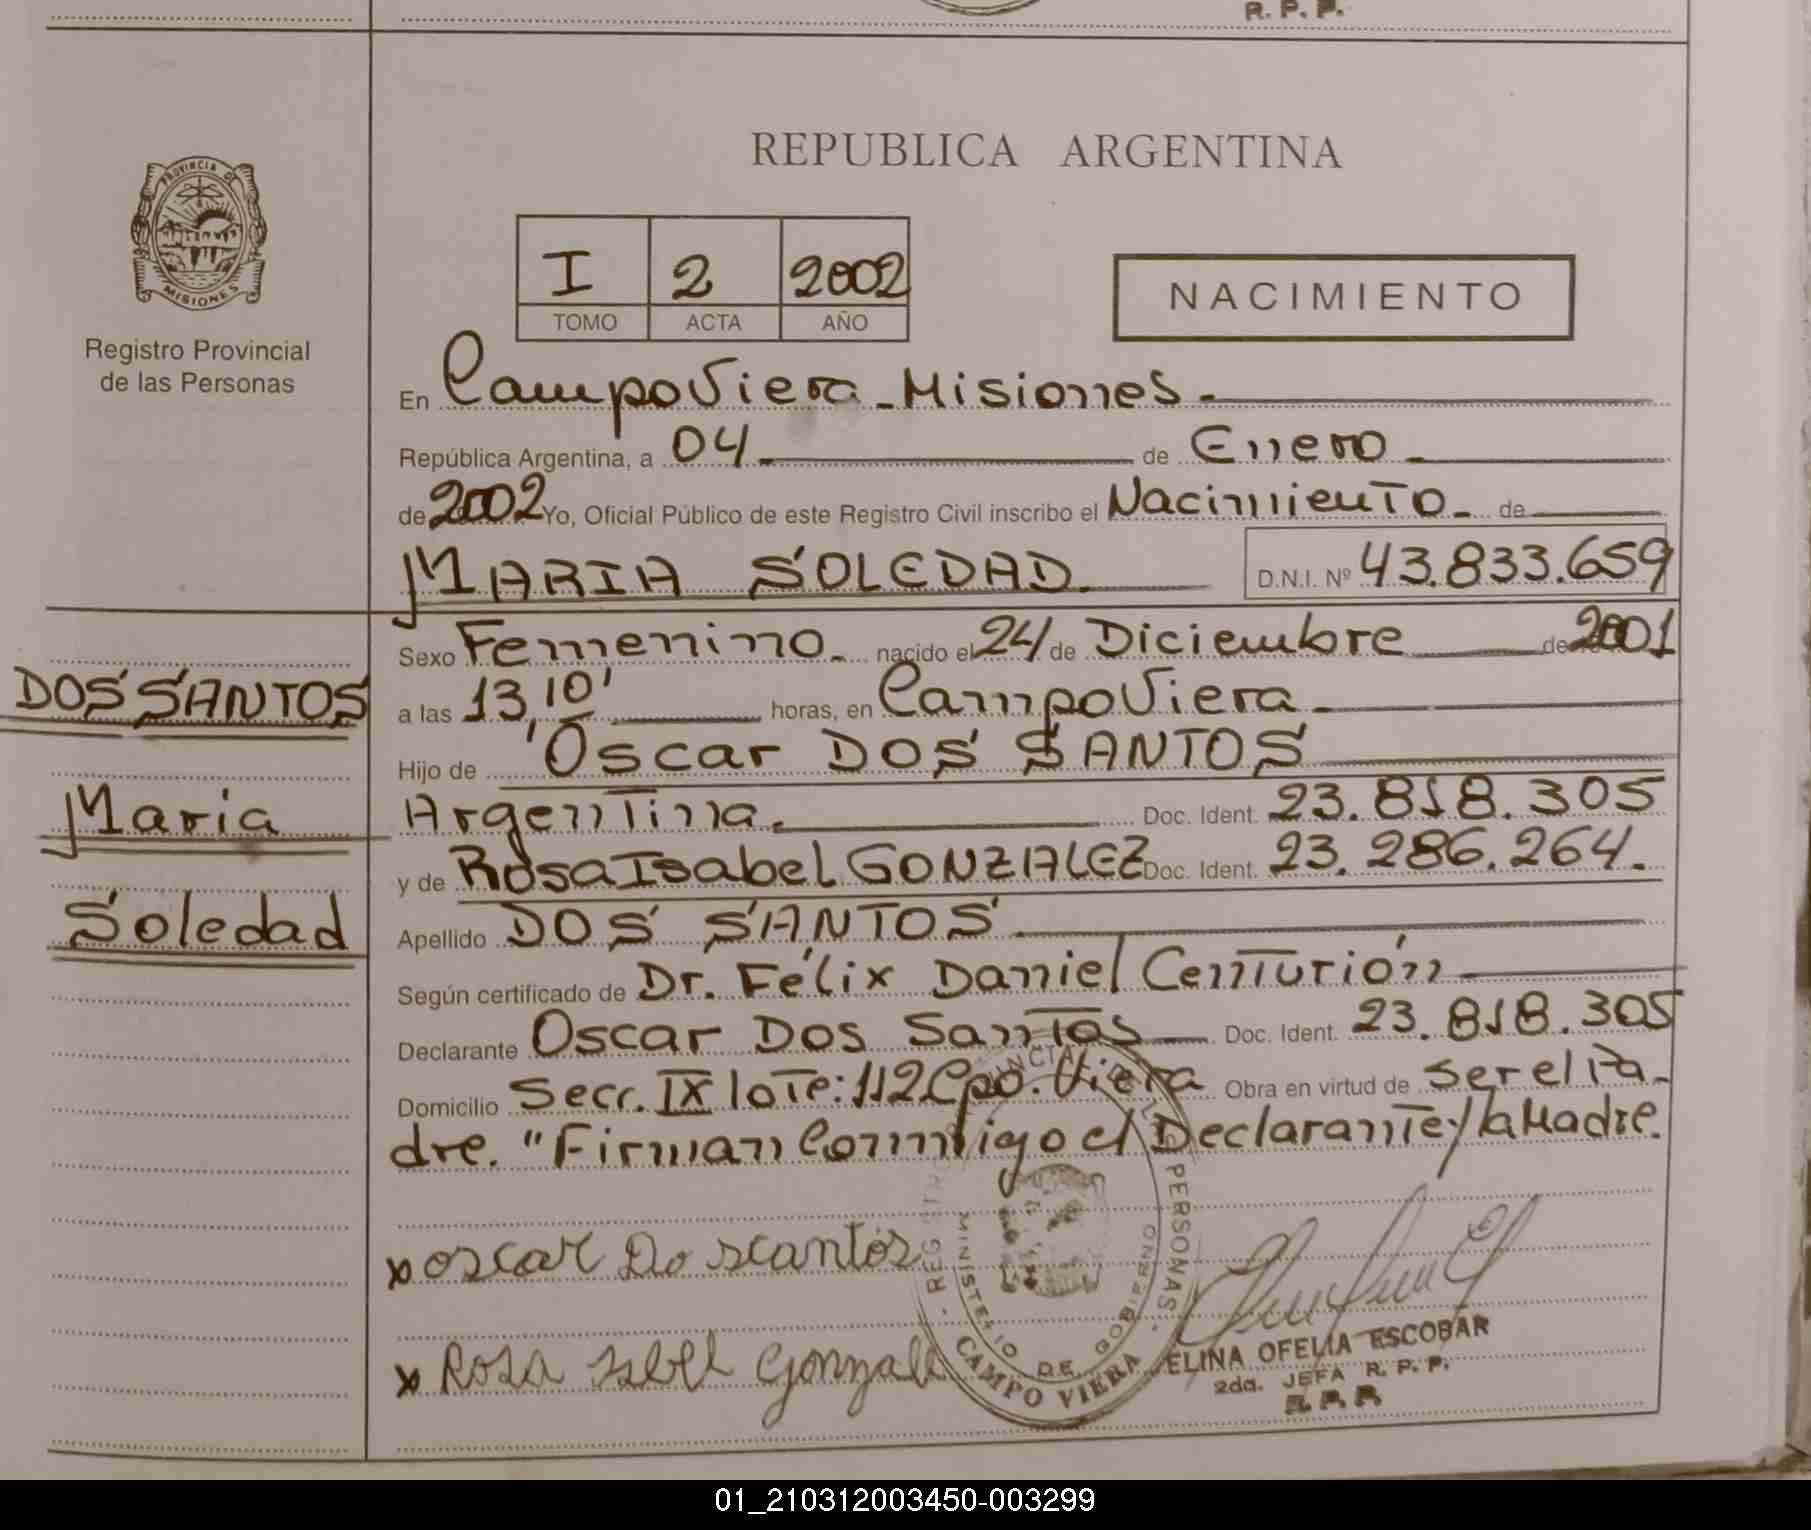 R. P. P.
REPUBLICA ARGENTINA
PROVINCIA DE
MISIONES
Registro Provincial
de las Personas
I 2 2002
TOMO ACTA AÑO
NACIMIENTO
En Campo Viera - Misiones -
República Argentina, a 04 de Enero
de 2002 Yo, Oficial Público de este Registro Civil inscribo el Nacimiento - de
MARIA SOLEDAD. D.N.I. Nº 43.833.659
Sexo Femenino - nacido el 24 de Diciembre de 2001
DOS SANTOS
a las 13,10' horas, en Campo Viera -
Hijo de Oscar DOS SANTOS
Maria
Argentina. Doc. Ident. 23.818.305
y de Rosa Isabel GONZALEZ Doc. Ident. 23.286.264.
Soledad
Apellido DOS SANTOS.
Según certificado de Dr. Félix Daniel Centurión
Declarante Oscar Dos Santos Doc. Ident. 23.818.305
Domicilio Secc. IX lote: 112 Cpo. Viera Obra en virtud de ser el Pa-
dre. "Firman Conmigo el Declarante y la Madre.
x oscar Do scantos
x Rosa Isbel Gonzale
PERSONAS
MINISTERIO DE GOBIERNO
CAMPO VIERA
ELINA OFELIA ESCOBAR
2da. JEFA R. P. P.
R. P. P.
01_210312003450-003299